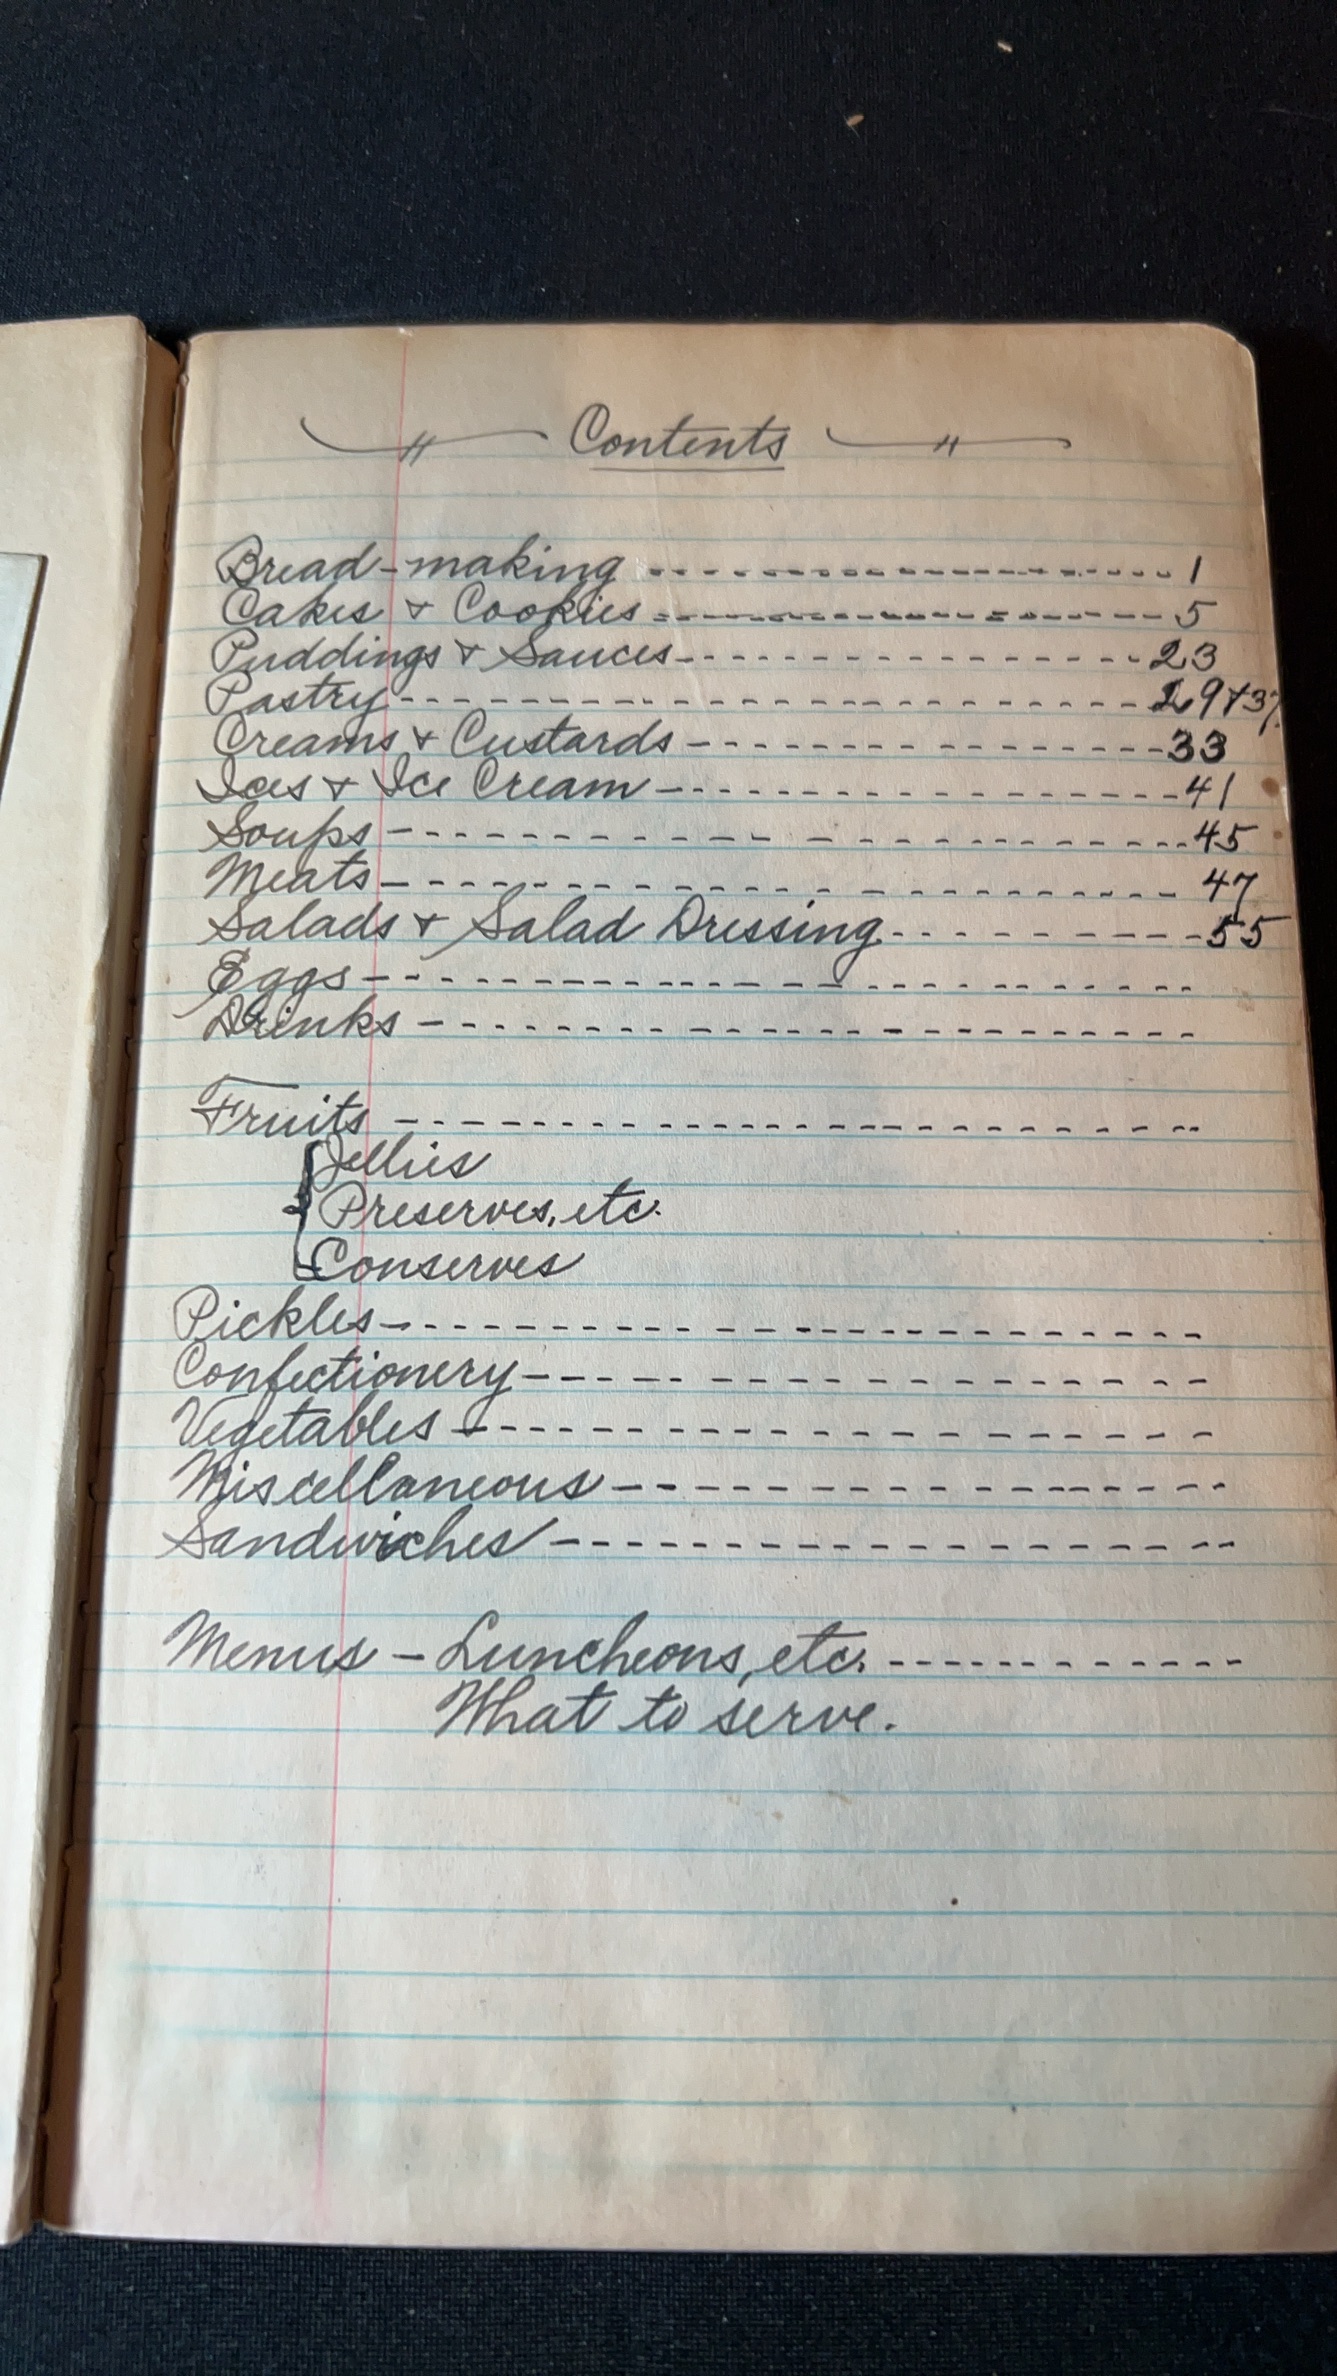 Contents
Bread-making 1
Cakes & Cookies 5
Puddings & Sauces 23
Pastry 29 & 37
Creams & Custards 33
Ices & Ice Cream 41
Soups 45
Meats 47
Salads & Salad Dressing 55
Eggs
Drinks
Fruits
Jellies
Preserves, etc.
Conserves
Pickles
Confectionery
Vegetables
Miscellaneous
Sandwiches
Menus - Luncheons, etc.
What to serve.